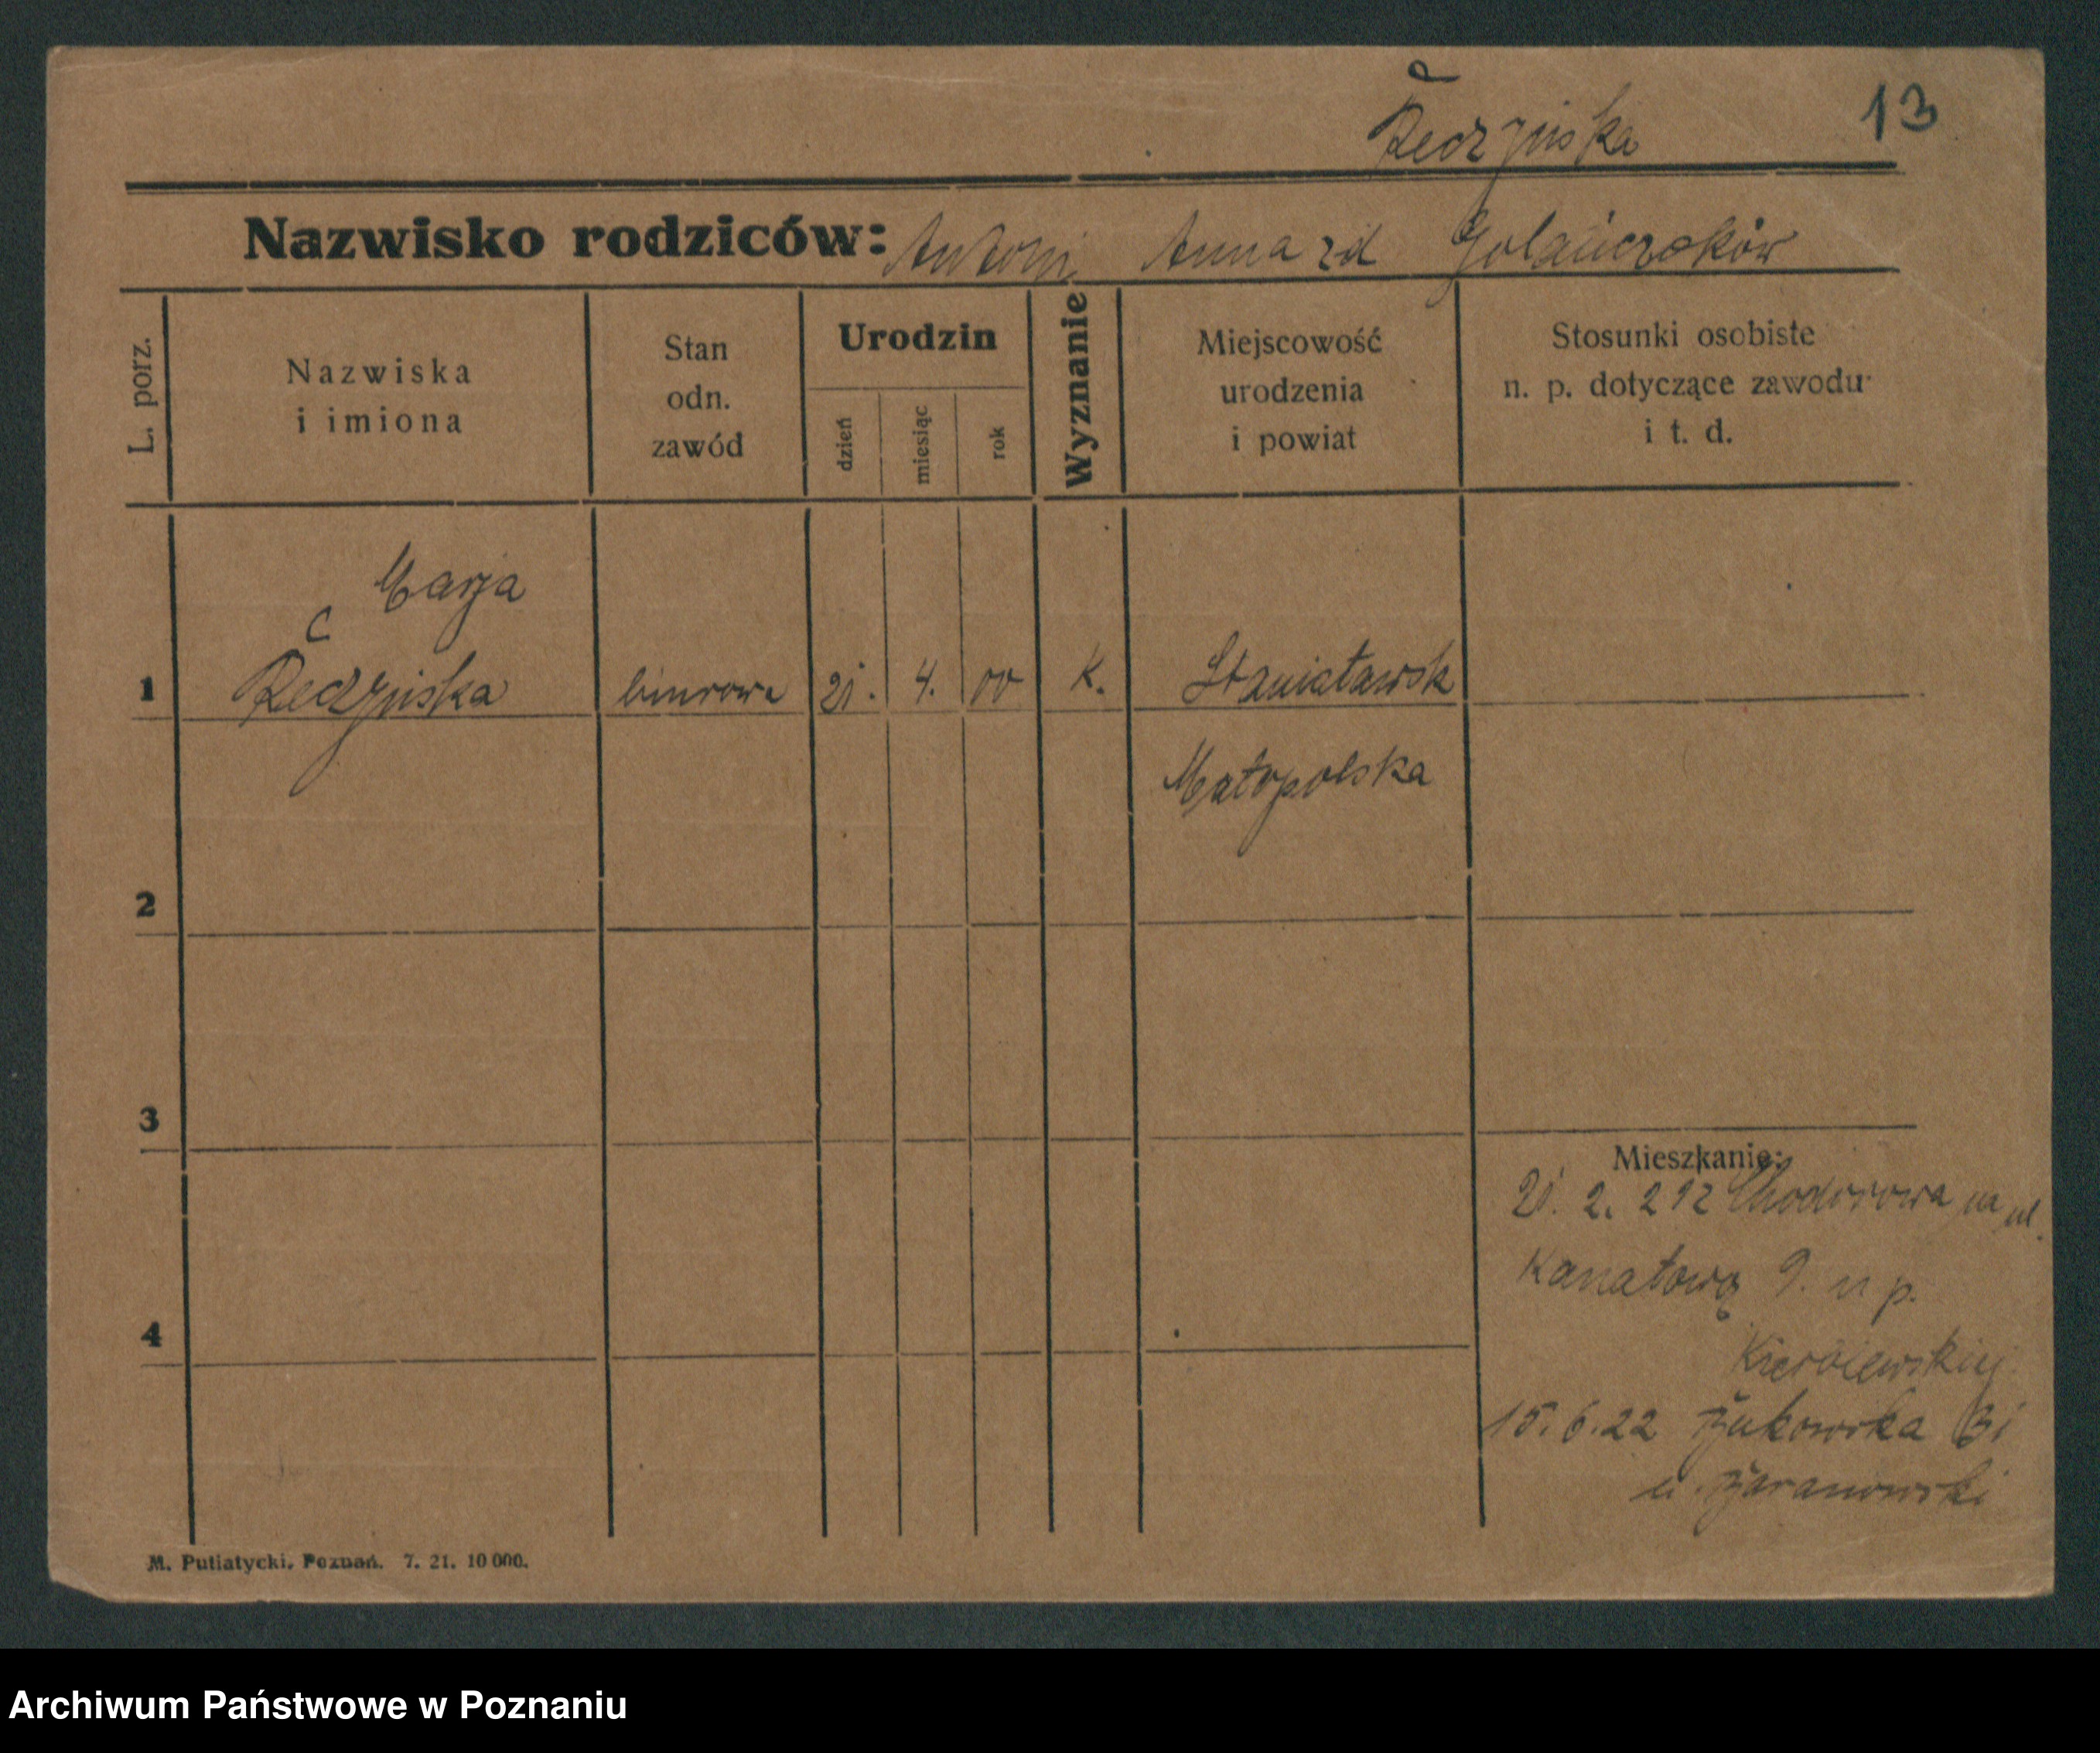 13
Reczyńska
Nazwisko rodziców: Antoni Anna zd Golańczoków
L. porz.
Nazwiska
i imiona
Stan
odn.
zawód
Urodzin
dzień
miesiąc
rok
Wyznanie
Miejscowość
urodzenia
i powiat
Stosunki osobiste
n. p. dotyczące zawodu
i t. d.
Marja
1 Reczyńska biurowa 21. 4. 00 K. Stanisławów
Małopolska
2
3
4
Mieszkanie:
21. 2. 212 Chodorowa na ul.
Kanałową 9. u p.
15. 6. 22 Bukowska 31
u. Baranowski
M. Putiatycki, Poznań. 7. 21. 10 000.
Archiwum Państwowe w Poznaniu